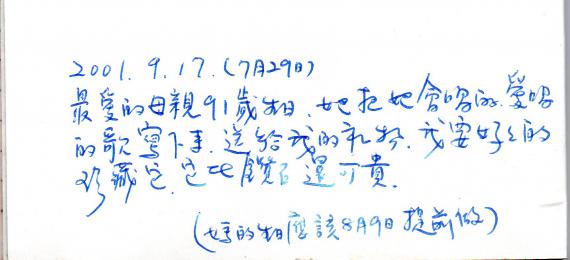 2001. 9. 17. (7月29日)
最愛的母親91歲生日. 她把她會唱的.愛唱
的歌寫下來. 送給我的禮物. 我要好々的
珍藏它. 它比鑽石還可貴.
(媽的生日應該8月9日提前做)